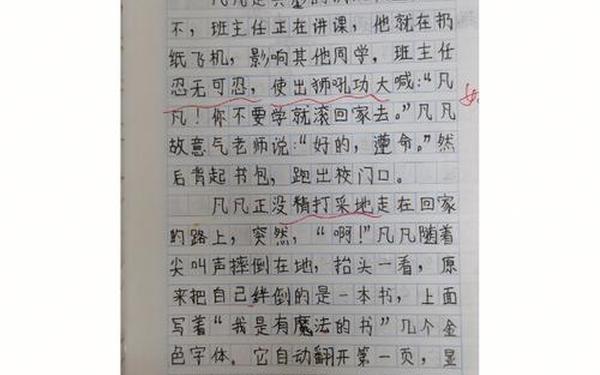 凡凡是典型的
不，班主任正在讲课，他就在扔
纸飞机，影响其他同学，班主任
忍无可忍，使出狮吼功大喊：“凡
凡！你不要学就滚回家去。”凡凡
故意气老师说：“好的，遵命。”然
后背起书包，跑出校门口。
凡凡正没精打采地走在回家
的路上，突然，“啊！”凡凡随着
尖叫声摔倒在地，抬头一看，原
来把自己绊倒的是一本书，上面
写着“我是有魔法的书”几个金
色字体。它自动翻开第一页，显